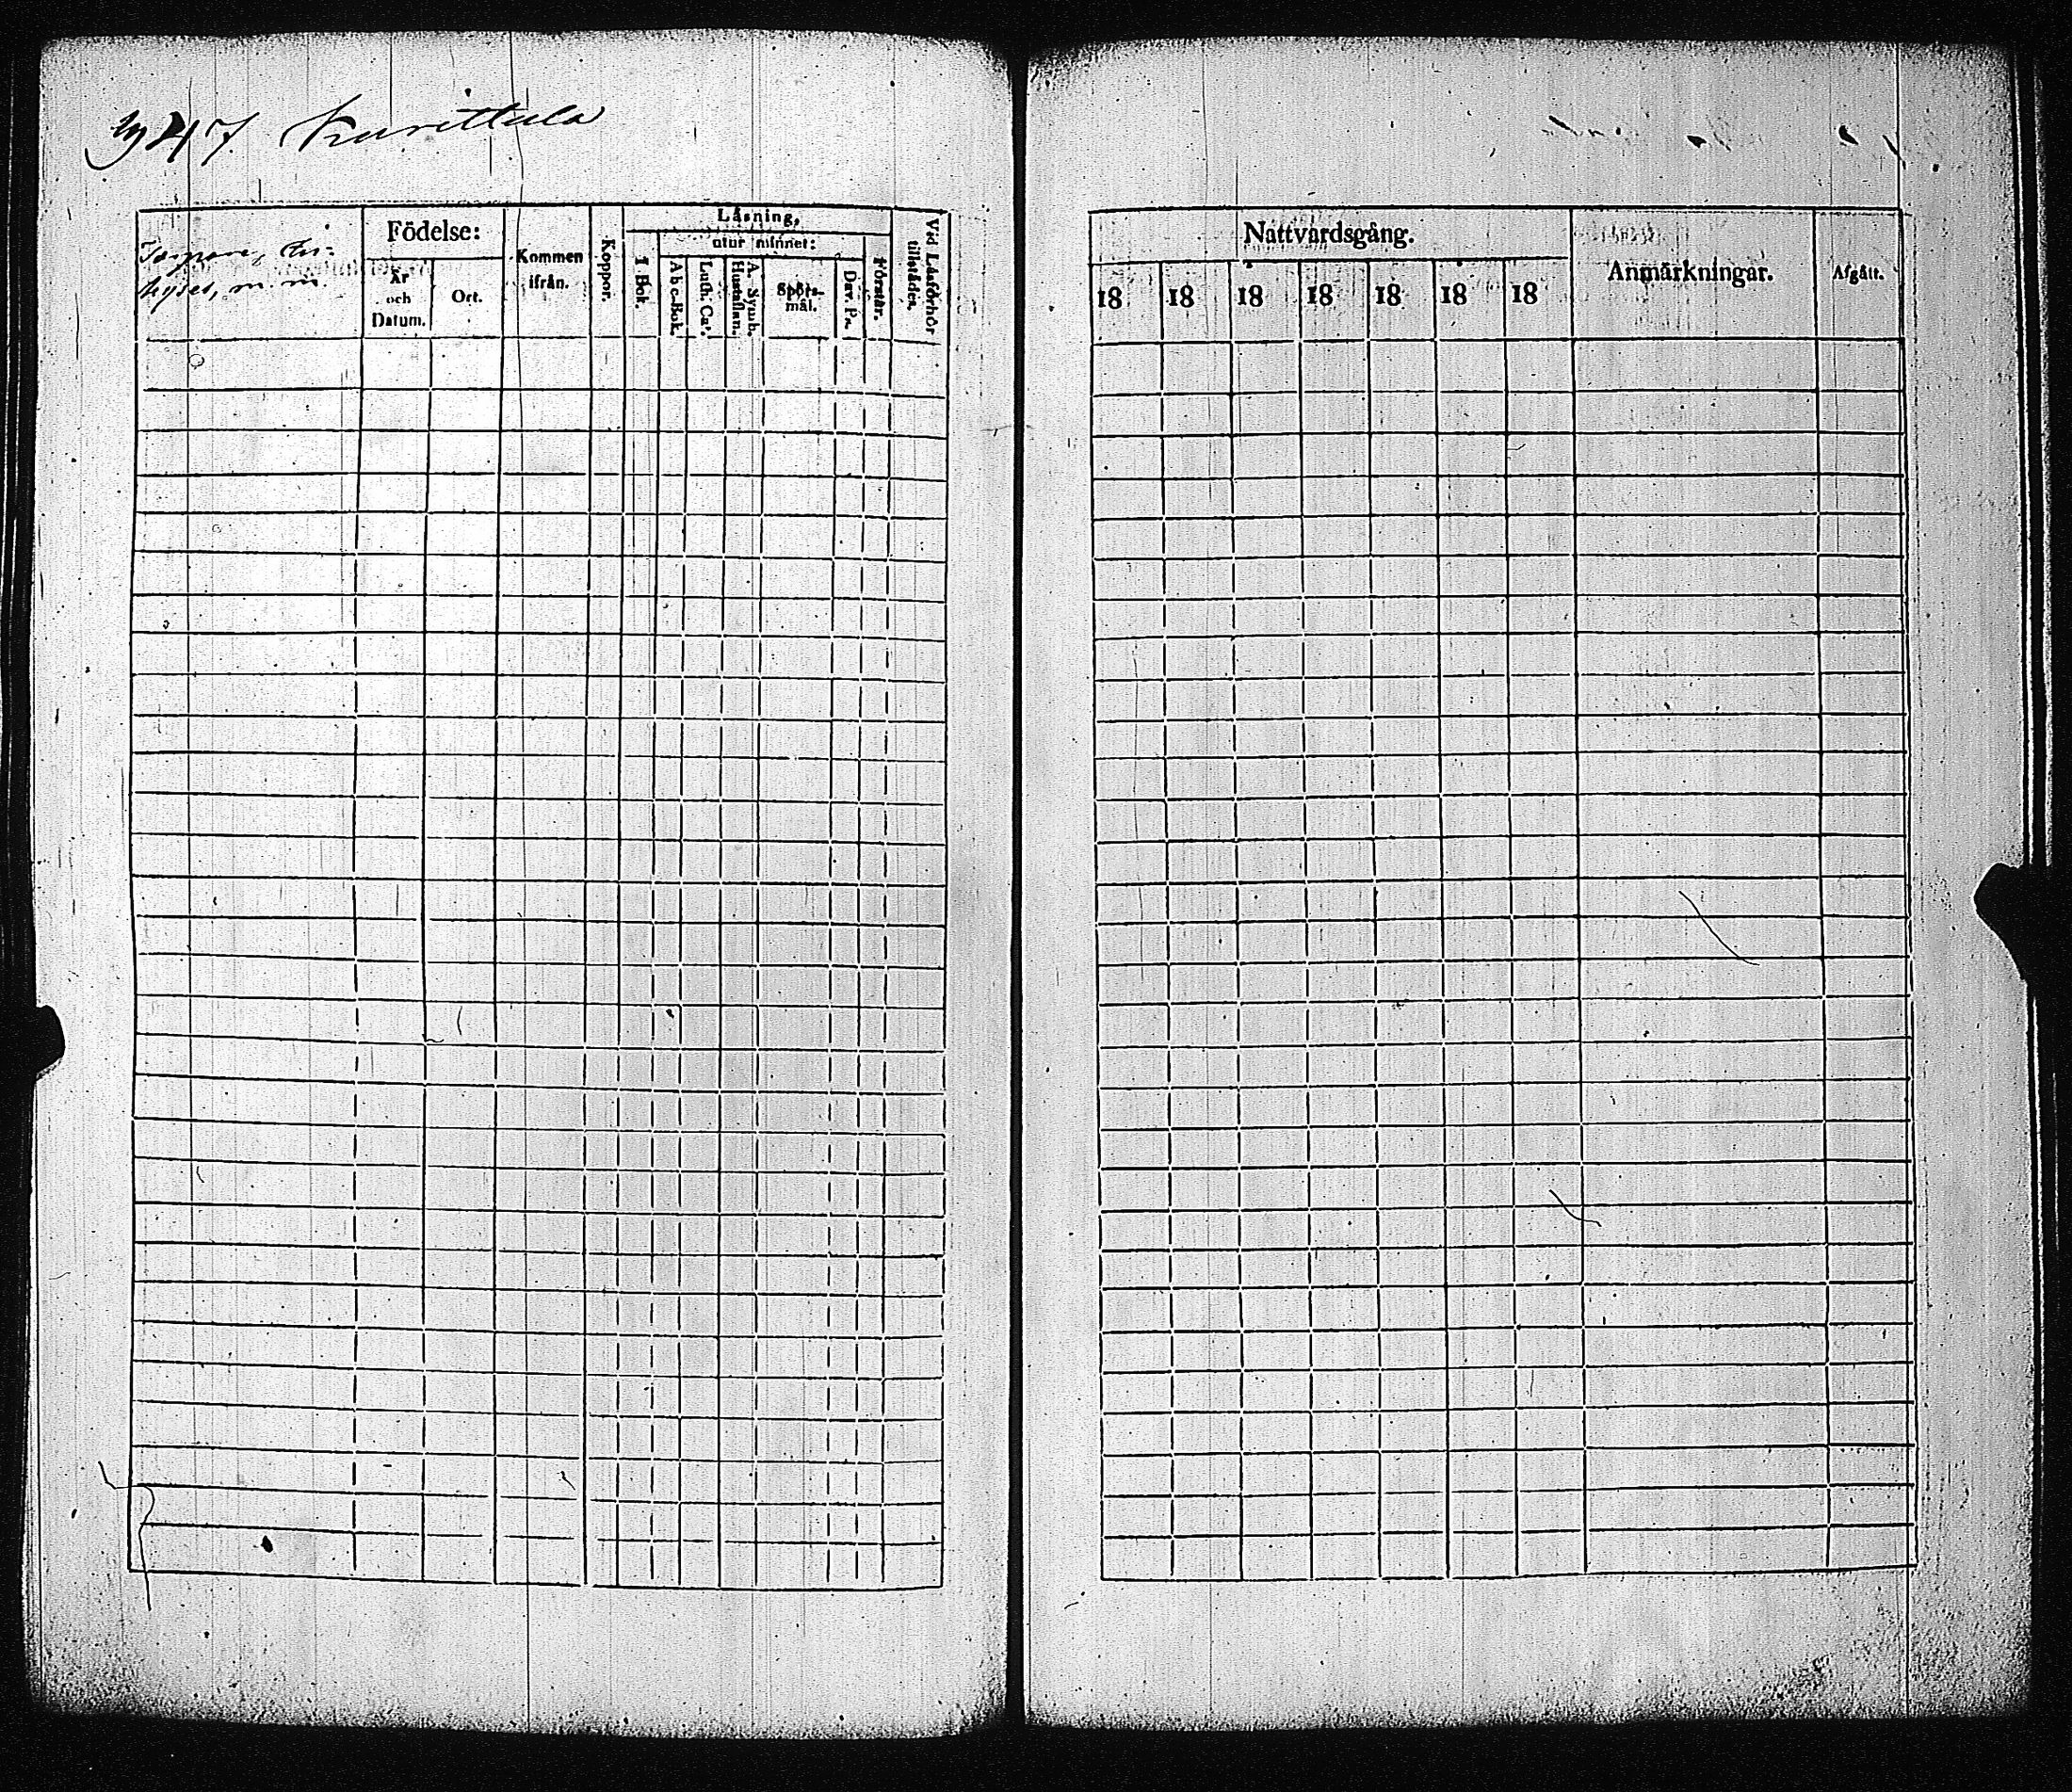 247. Kurittula
Torpare, In-
hyses, m. m.
Födelse:
År
och
Datum.
Ort.
Kommen
ifrån.
Koppor.
Läsning,
I Bok.
utur minnet:
Abc-Bok.
Luth. Cat.
A. Symb.
Hustaflan.
Spörs-
mål.
Dav. Ps.
Förstår.
Vid Läsförhör
tillstädes.
Nattvardsgång.
18 18 18 18 18 18 18
Anmärkningar.
Afgått.